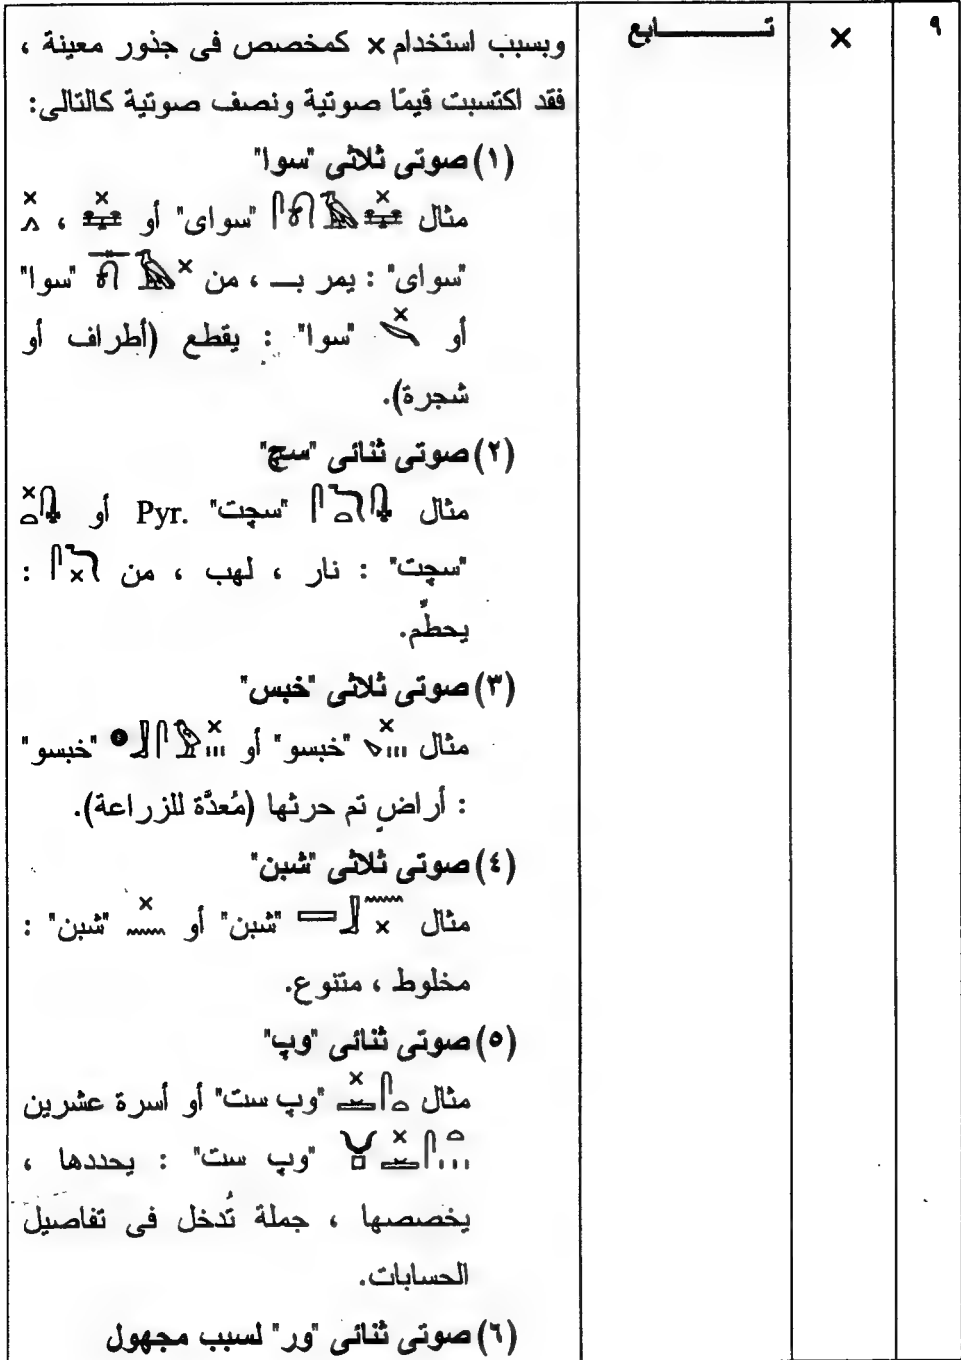 ٩ × تــــــابع وبسبب استخدام × كمخصص فى جذور معينة ،
فقد اكتسبت قيمًا صوتية ونصف صوتية كالتالى:
(١) صوتى ثلاثى "سوا"
مثال "سواى" أو ،
"سواى" : يمر بــ ، من "سوا"
أو "سوا" : يقطع (أطراف أو
شجرة).
(٢) صوتى ثنائى "سچ"
مثال "سچت" Pyr. أو
"سچت" : نار ، لهب ، من :
يحطِّم.
(٣) صوتى ثلاثى "خبس"
مثال "خبسو" أو "خبسو"
: أراضٍ تم حرثها (مُعدَّة للزراعة).
(٤) صوتى ثلاثى "شبن"
مثال "شبن" أو "شبن" :
مخلوط ، متنوع.
(٥) صوتى ثنائى "وپ"
مثال "وپ ست" أو أسرة عشرين
"وپ ست" : يحددها ،
يخصصها ، جملة تُدخل فى تفاصيل
الحسابات.
(٦) صوتى ثنائى "ور" لسبب مجهول